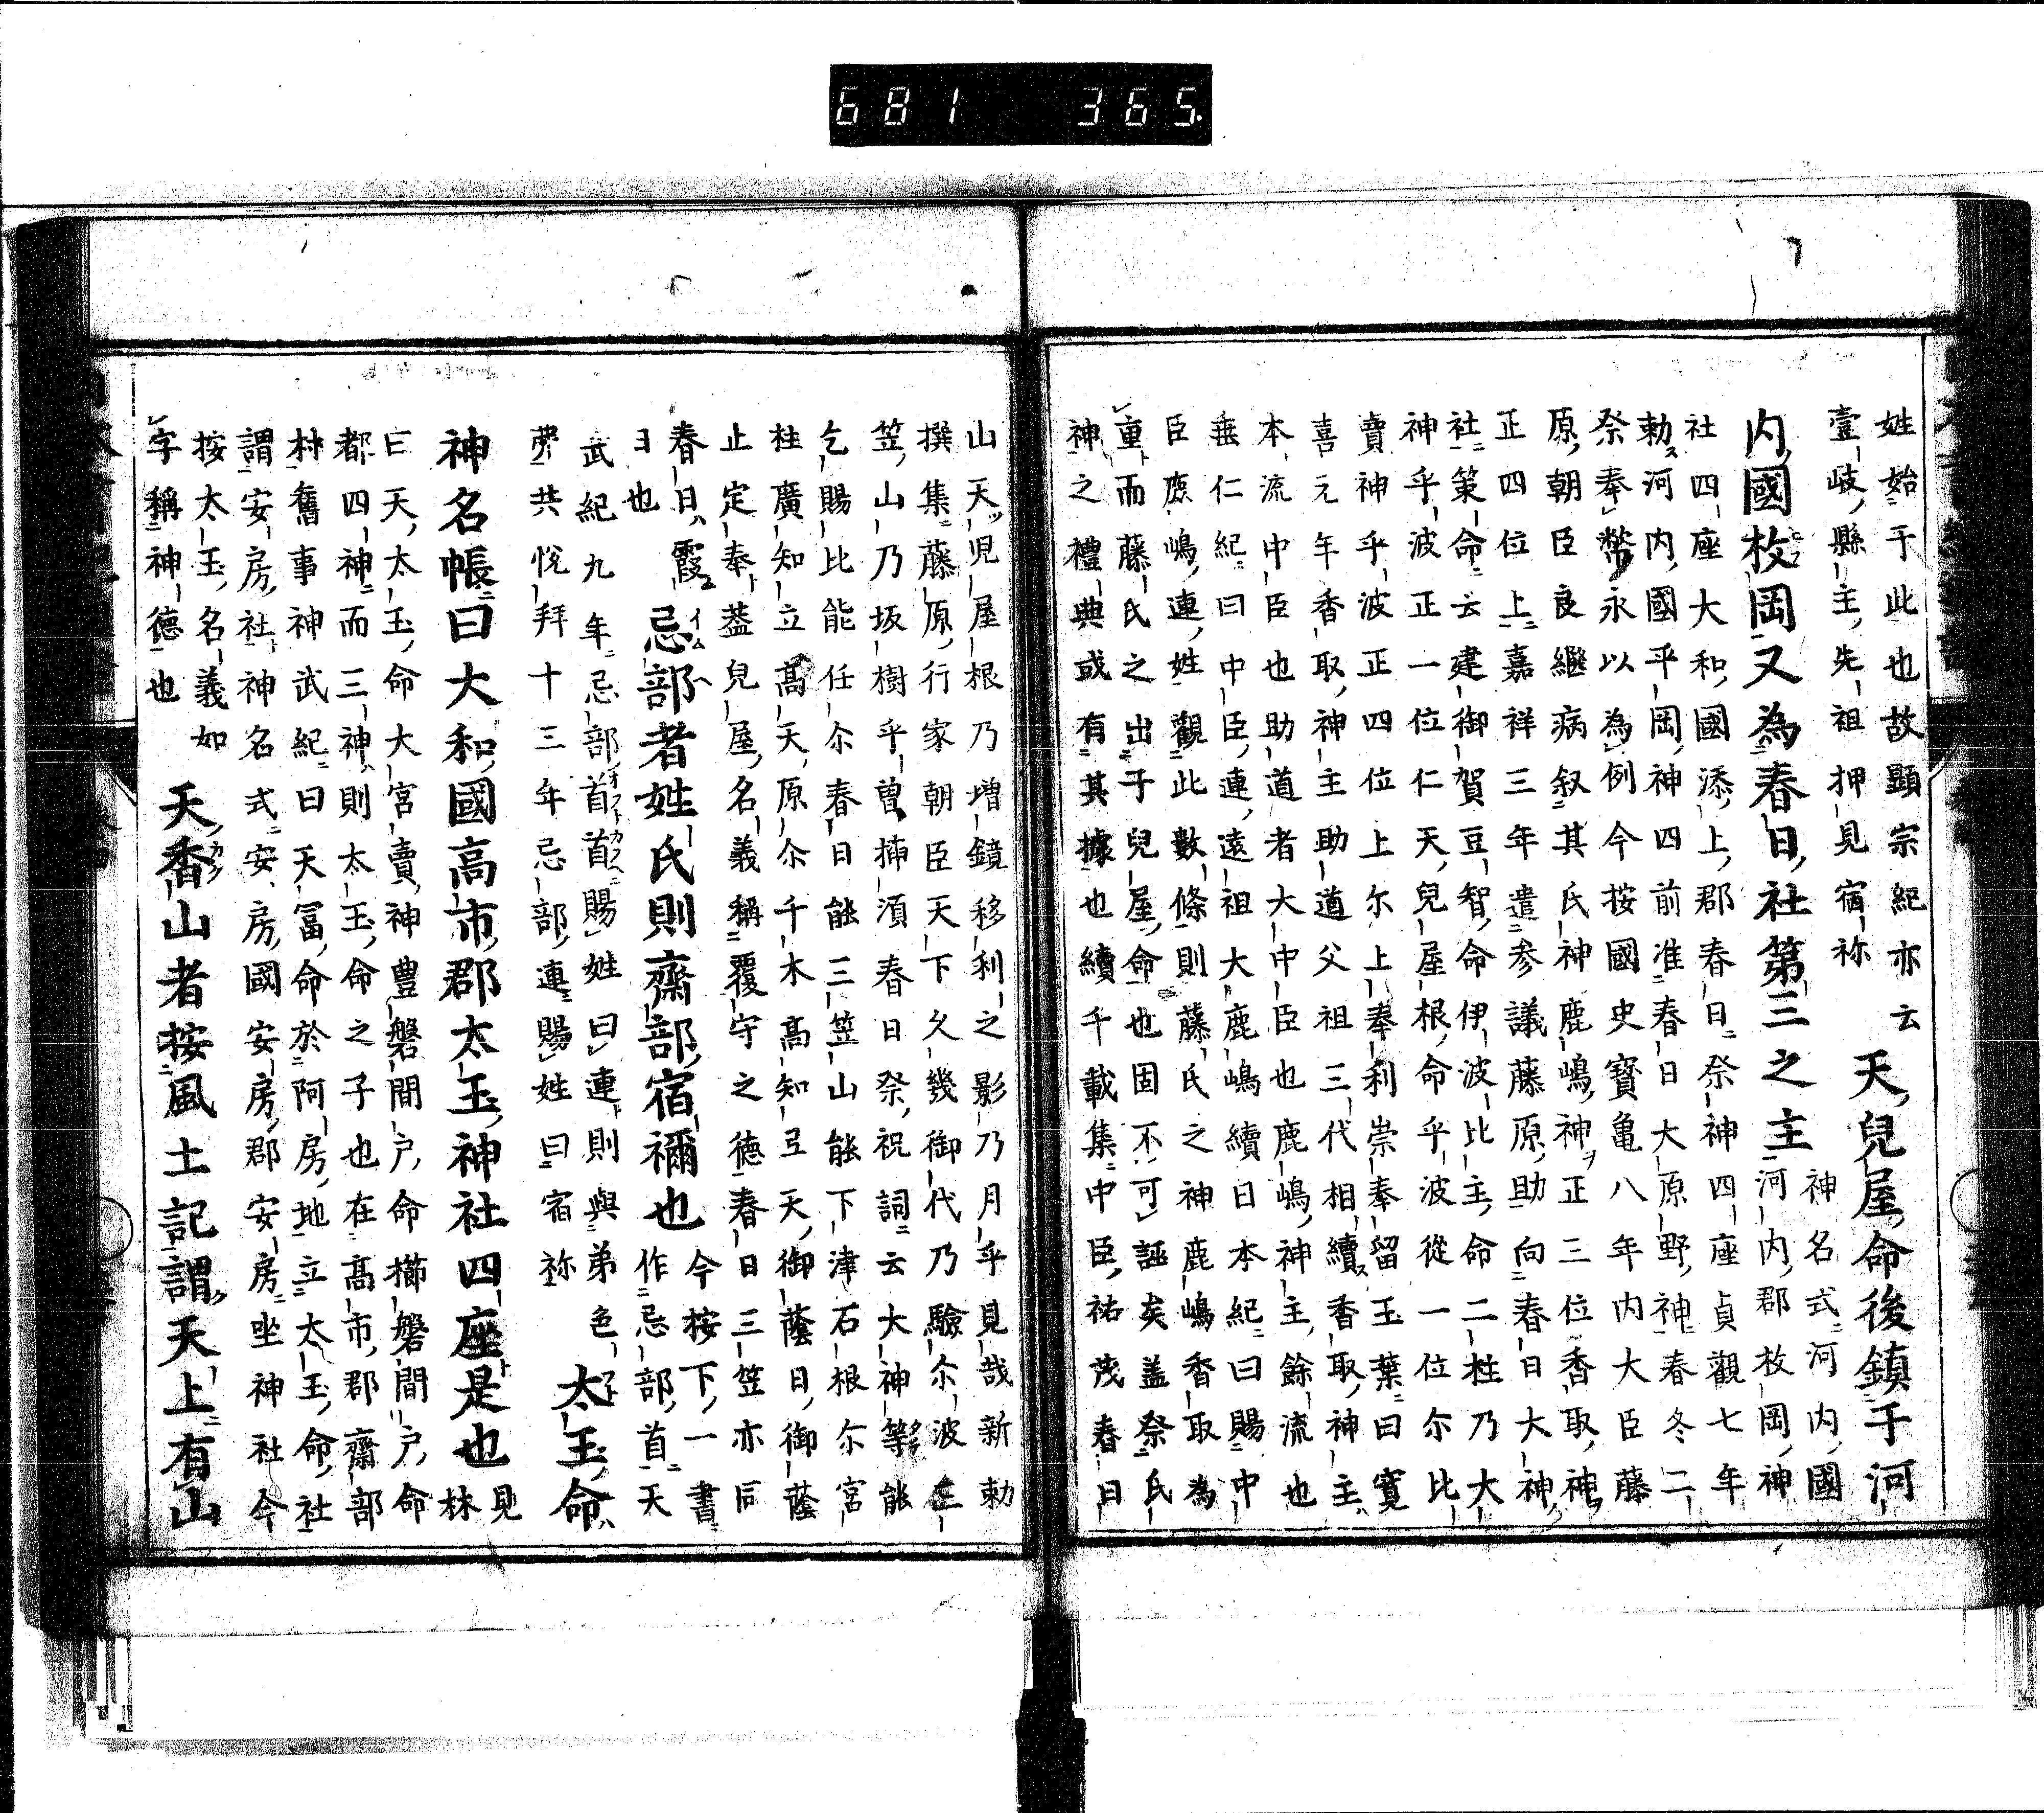 681 365.
姓始于此也故顯宗紀亦云
壹岐縣主先祖押見宿祢
天兒屋命後鎮于河
内國枚岡又為春日社第三之主
神名式河内國
河内郡枚岡神
社四座大和國添上郡春日祭神四座貞觀七年
勅河内國平岡神四前准春日大原野神春冬二
祭奉幣永以為例今按國史寶亀八年内大臣藤
原朝臣良継病叙其氏神鹿嶋神正三位香取神
正四位上嘉祥三年遣参議藤原助向春日大神
社策命云建御賀豆智命伊波比主命二柱乃大
神乎波正一位仁天兒屋根命乎波從一位尓比
賣神乎波正四位上尓上奉利崇奉留玉葉曰寛
喜元年香取神主助道父祖三代相續香取神主
本流中臣也助道者大中臣也鹿嶋神主餘流也
垂仁紀曰中臣連遠祖大鹿嶋續日本紀曰賜中
臣鹿嶋連姓觀此數條則藤氏之神鹿嶋香取為
重而藤氏之出于兒屋命也固不可誣矣盖祭氏
神之禮典或有其據也續千載集中臣祐茂春日
山天児屋根乃増鏡移利之影乃月乎見哉新勅
撰集藤原行家朝臣天下久幾御代乃驗尓波三
笠山乃坂樹乎曽插須春日祭祝詞云大神等能
乞賜比能任尓春日能三笠山能下津石根尓宮
柱廣知立高天原尓千木高知弖天御蔭日御蔭
止定奉盖兒屋名義稱覆守之德春日三笠亦同
春日霞
日也
忌部者姓氏則齋部宿禰也
今按下一書
作忌部首天
武紀九年忌部首首賜姓曰連則與弟色
弗共悅拝十三年忌部連賜姓曰宿祢
太玉命
神名帳曰大和國高市郡太玉神社四座是也
見
林
曰天太玉命大宮賣神豊磐間戸命櫛磐間戸命
都四神而三神則太玉命之子也在高市郡齋部
村舊事神武紀曰天冨命於阿房地立太玉命社
謂安房社神名式安房國安房郡安房坐神社今
按太玉名義如
字稱神德也
天香山者按風土記謂天上有山